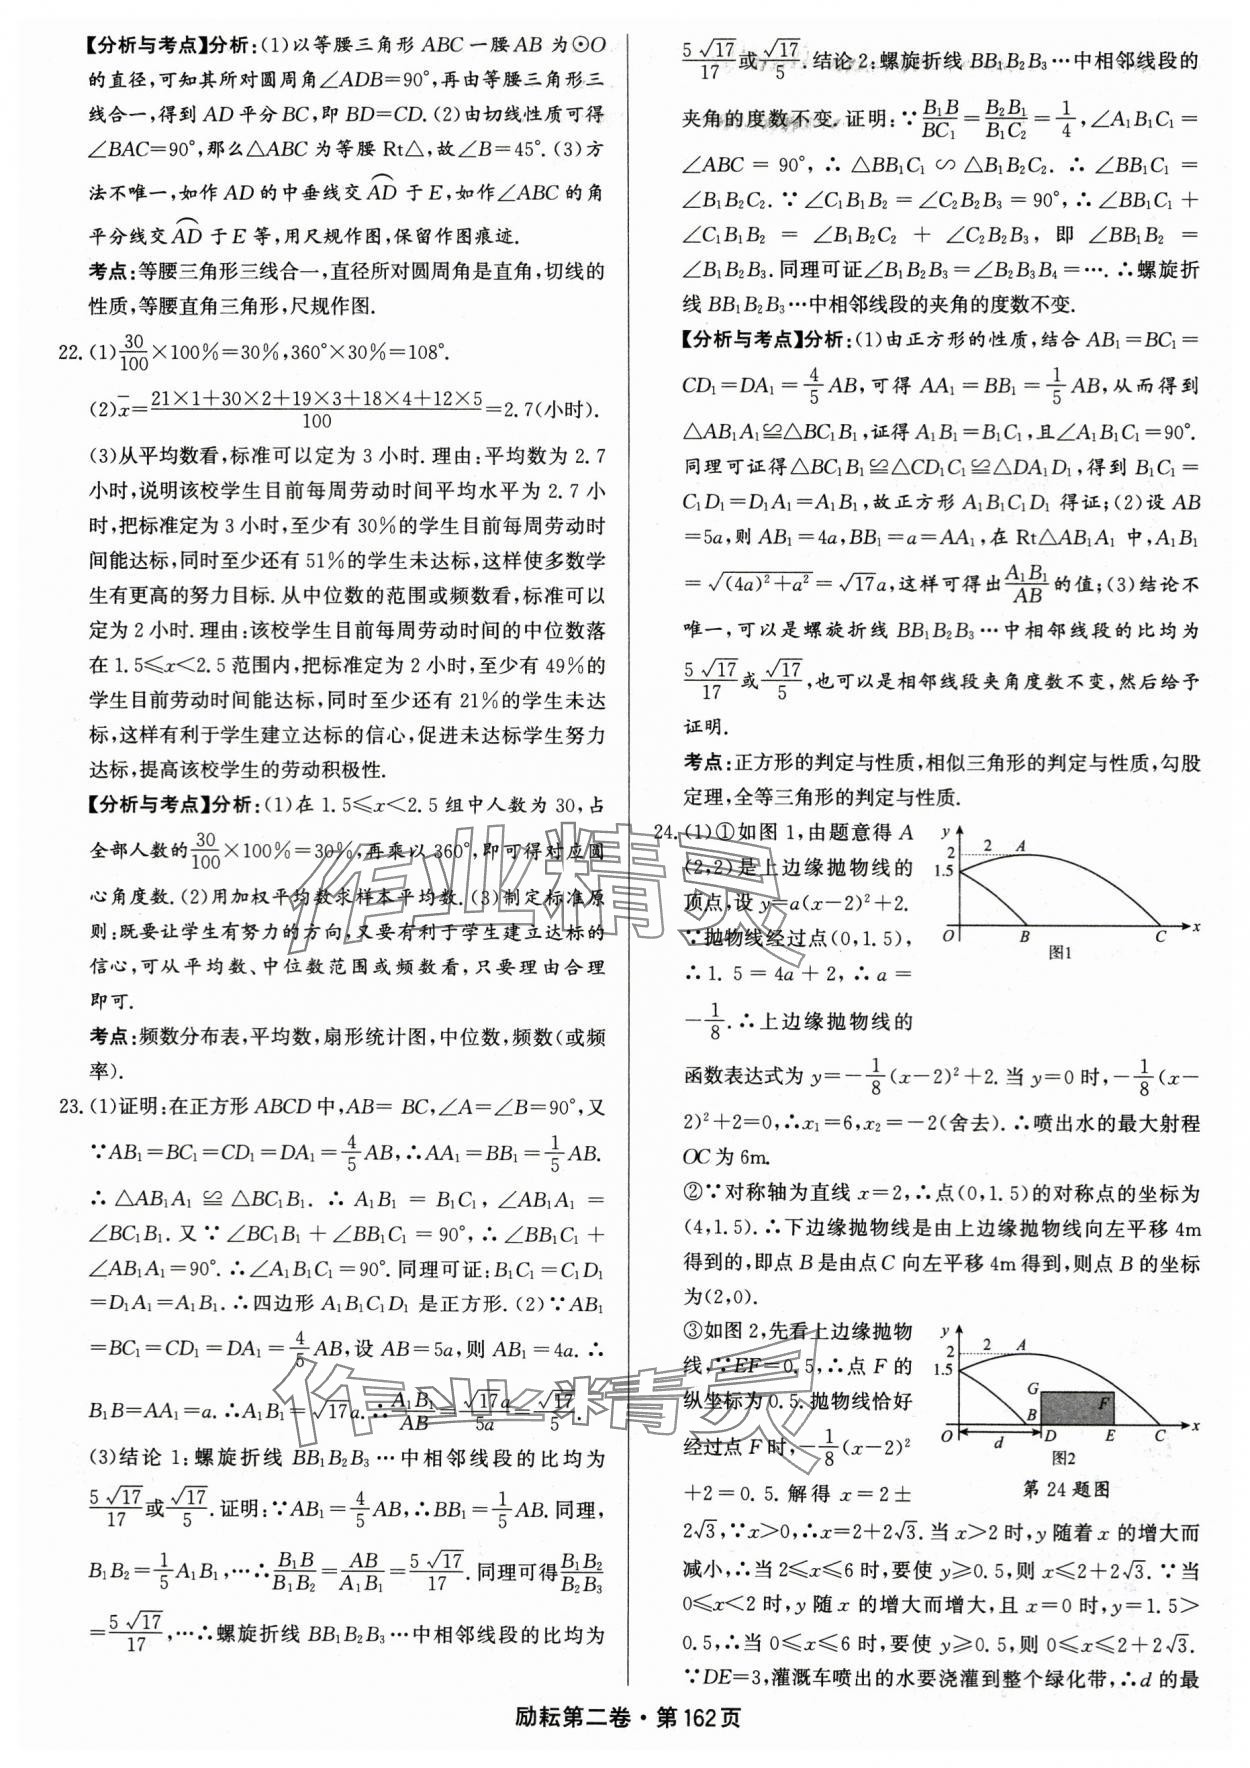 【分析与考点】分析:(1)以等腰三角形 ABC 一腰 AB 为⊙O
的直径,可知其所对圆周角∠ADB=90°,再由等腰三角形三
线合一,得到 AD 平分 BC,即 BD=CD.(2)由切线性质可得
∠BAC=90°,那么△ABC 为等腰 Rt△,故∠B=45°.(3)方
法不唯一,如作 AD 的中垂线交 AD⌢ 于 E,如作∠ABC 的角
平分线交 AD⌢ 于 E 等,用尺规作图,保留作图痕迹.
考点:等腰三角形三线合一,直径所对圆周角是直角,切线的
性质,等腰直角三角形,尺规作图.
22. (1) 30/100 ×100%=30%,360°×30%=108°.
(2) x̄ = (21×1+30×2+19×3+18×4+12×5)/100 =2.7(小时).
(3)从平均数看,标准可以定为 3 小时.理由:平均数为 2.7
小时,说明该校学生目前每周劳动时间平均水平为 2.7 小
时,把标准定为 3 小时,至少有 30%的学生目前每周劳动时
间能达标,同时至少还有 51%的学生未达标,这样使多数学
生有更高的努力目标.从中位数的范围或频数看,标准可以
定为 2 小时.理由:该校学生目前每周劳动时间的中位数落
在 1.5≤x<2.5 范围内,把标准定为 2 小时,至少有 49%的
学生目前劳动时间能达标,同时至少还有 21%的学生未达
标,这样有利于学生建立达标的信心,促进未达标学生努力
达标,提高该校学生的劳动积极性.
【分析与考点】分析:(1)在 1.5≤x<2.5 组中人数为 30,占
全部人数的 30/100 ×100%=30%,再乘以 360°,即可得对应圆
心角度数.(2)用加权平均数求样本平均数.(3)制定标准原
则:既要让学生有努力的方向,又要有利于学生建立达标的
信心,可从平均数、中位数范围或频数看,只要理由合理
即可.
考点:频数分布表,平均数,扇形统计图,中位数,频数(或频
率).
23. (1)证明:在正方形 ABCD 中,AB= BC,∠A=∠B=90°,又
∵AB₁=BC₁=CD₁=DA₁= 4/5 AB,∴AA₁=BB₁= 1/5 AB.
∴ △AB₁A₁ ≌ △BC₁B₁. ∴ A₁B₁ = B₁C₁,∠AB₁A₁ =
∠BC₁B₁. 又 ∵ ∠BC₁B₁ + ∠BB₁C₁ = 90°,∴∠BB₁C₁ +
∠AB₁A₁=90°.∴∠A₁B₁C₁=90°.同理可证:B₁C₁=C₁D₁
=D₁A₁=A₁B₁.∴四边形 A₁B₁C₁D₁ 是正方形.(2)∵AB₁
=BC₁=CD₁=DA₁= 4/5 AB,设 AB=5a,则 AB₁=4a.∴
B₁B=AA₁=a.∴A₁B₁=√17a.∴ A₁B₁/AB = √17a/5a = √17/5.
(3)结论 1:螺旋折线 BB₁B₂B₃…中相邻线段的比均为
5√17/17 或 √17/5.证明:∵AB₁= 4/5 AB,∴BB₁= 1/5 AB.同理,
B₁B₂= 1/5 A₁B₁,…∴ B₁B/B₁B₂ = AB/A₁B₁ = 5√17/17.同理可得 B₁B₂/B₂B₃
= 5√17/17,…∴螺旋折线 BB₁B₂B₃…中相邻线段的比均为
5√17/17 或 √17/5.结论 2:螺旋折线 BB₁B₂B₃…中相邻线段的
夹角的度数不变.证明:∵ B₁B/BC₁ = B₂B₁/B₁C₂ = 1/4,∠A₁B₁C₁=
∠ABC = 90°,∴ △BB₁C₁ ∽ △B₁B₂C₂. ∴ ∠BB₁C₁ =
∠B₁B₂C₂.∵∠C₁B₁B₂=∠C₂B₂B₃=90°,∴∠BB₁C₁+
∠C₁B₁B₂ = ∠B₁B₂C₂ + ∠C₂B₂B₃,即 ∠BB₁B₂ =
∠B₁B₂B₃.同理可证∠B₁B₂B₃=∠B₂B₃B₄=….∴螺旋折
线 BB₁B₂B₃…中相邻线段的夹角的度数不变.
【分析与考点】分析:(1)由正方形的性质,结合 AB₁=BC₁=
CD₁=DA₁= 4/5 AB,可得 AA₁=BB₁= 1/5 AB,从而得到
△AB₁A₁≌△BC₁B₁,证得 A₁B₁=B₁C₁,且∠A₁B₁C₁=90°.
同理可证得△BC₁B₁≌△CD₁C₁≌△DA₁D₁,得到 B₁C₁=
C₁D₁=D₁A₁=A₁B₁,故正方形 A₁B₁C₁D₁ 得证;(2)设 AB
=5a,则 AB₁=4a,BB₁=a=AA₁,在 Rt△AB₁A₁ 中,A₁B₁
=√((4a)²+a²)=√17a,这样可得出 A₁B₁/AB 的值;(3)结论不
唯一,可以是螺旋折线 BB₁B₂B₃…中相邻线段的比均为
5√17/17 或 √17/5,也可以是相邻线段夹角度数不变,然后给予
证明.
考点:正方形的判定与性质,相似三角形的判定与性质,勾股
定理,全等三角形的判定与性质.
24. (1)①如图 1,由题意得 A
(2,2)是上边缘抛物线的
顶点,设 y=a(x-2)²+2.
∵抛物线经过点(0,1.5),
∴1.5=4a+2,∴a=
- 1/8.∴上边缘抛物线的
y 2 1.5 2 A O B C x
图1
函数表达式为 y=- 1/8 (x-2)²+2.当 y=0 时,- 1/8 (x-
2)²+2=0,∴x₁=6,x₂=-2(舍去).∴喷出水的最大射程
OC 为 6m.
②∵对称轴为直线 x=2,∴点(0,1.5)的对称点的坐标为
(4,1.5).∴下边缘抛物线是由上边缘抛物线向左平移 4m
得到的,即点 B 是由点 C 向左平移 4m 得到,则点 B 的坐标
为(2,0).
③如图 2,先看上边缘抛物
线,∵EF=0.5,∴点 F 的
纵坐标为 0.5.抛物线恰好
经过点 F 时,- 1/8 (x-2)²
+2=0.5.解得 x=2±
y 2 1.5 2 A G F B O d D E C x
图2
第 24 题图
2√3,∵x>0,∴x=2+2√3.当 x>2 时,y 随着 x 的增大而
减小,∴当 2≤x≤6 时,要使 y≥0.5,则 x≤2+2√3.∵当
0≤x<2 时,y 随 x 的增大而增大,且 x=0 时,y=1.5>
0.5,∴当 0≤x≤6 时,要使 y≥0.5,则 0≤x≤2+2√3.
∵DE=3,灌溉车喷出的水要浇灌到整个绿化带,∴d 的最
励耘第二卷·第162页
作业精灵
作业精灵